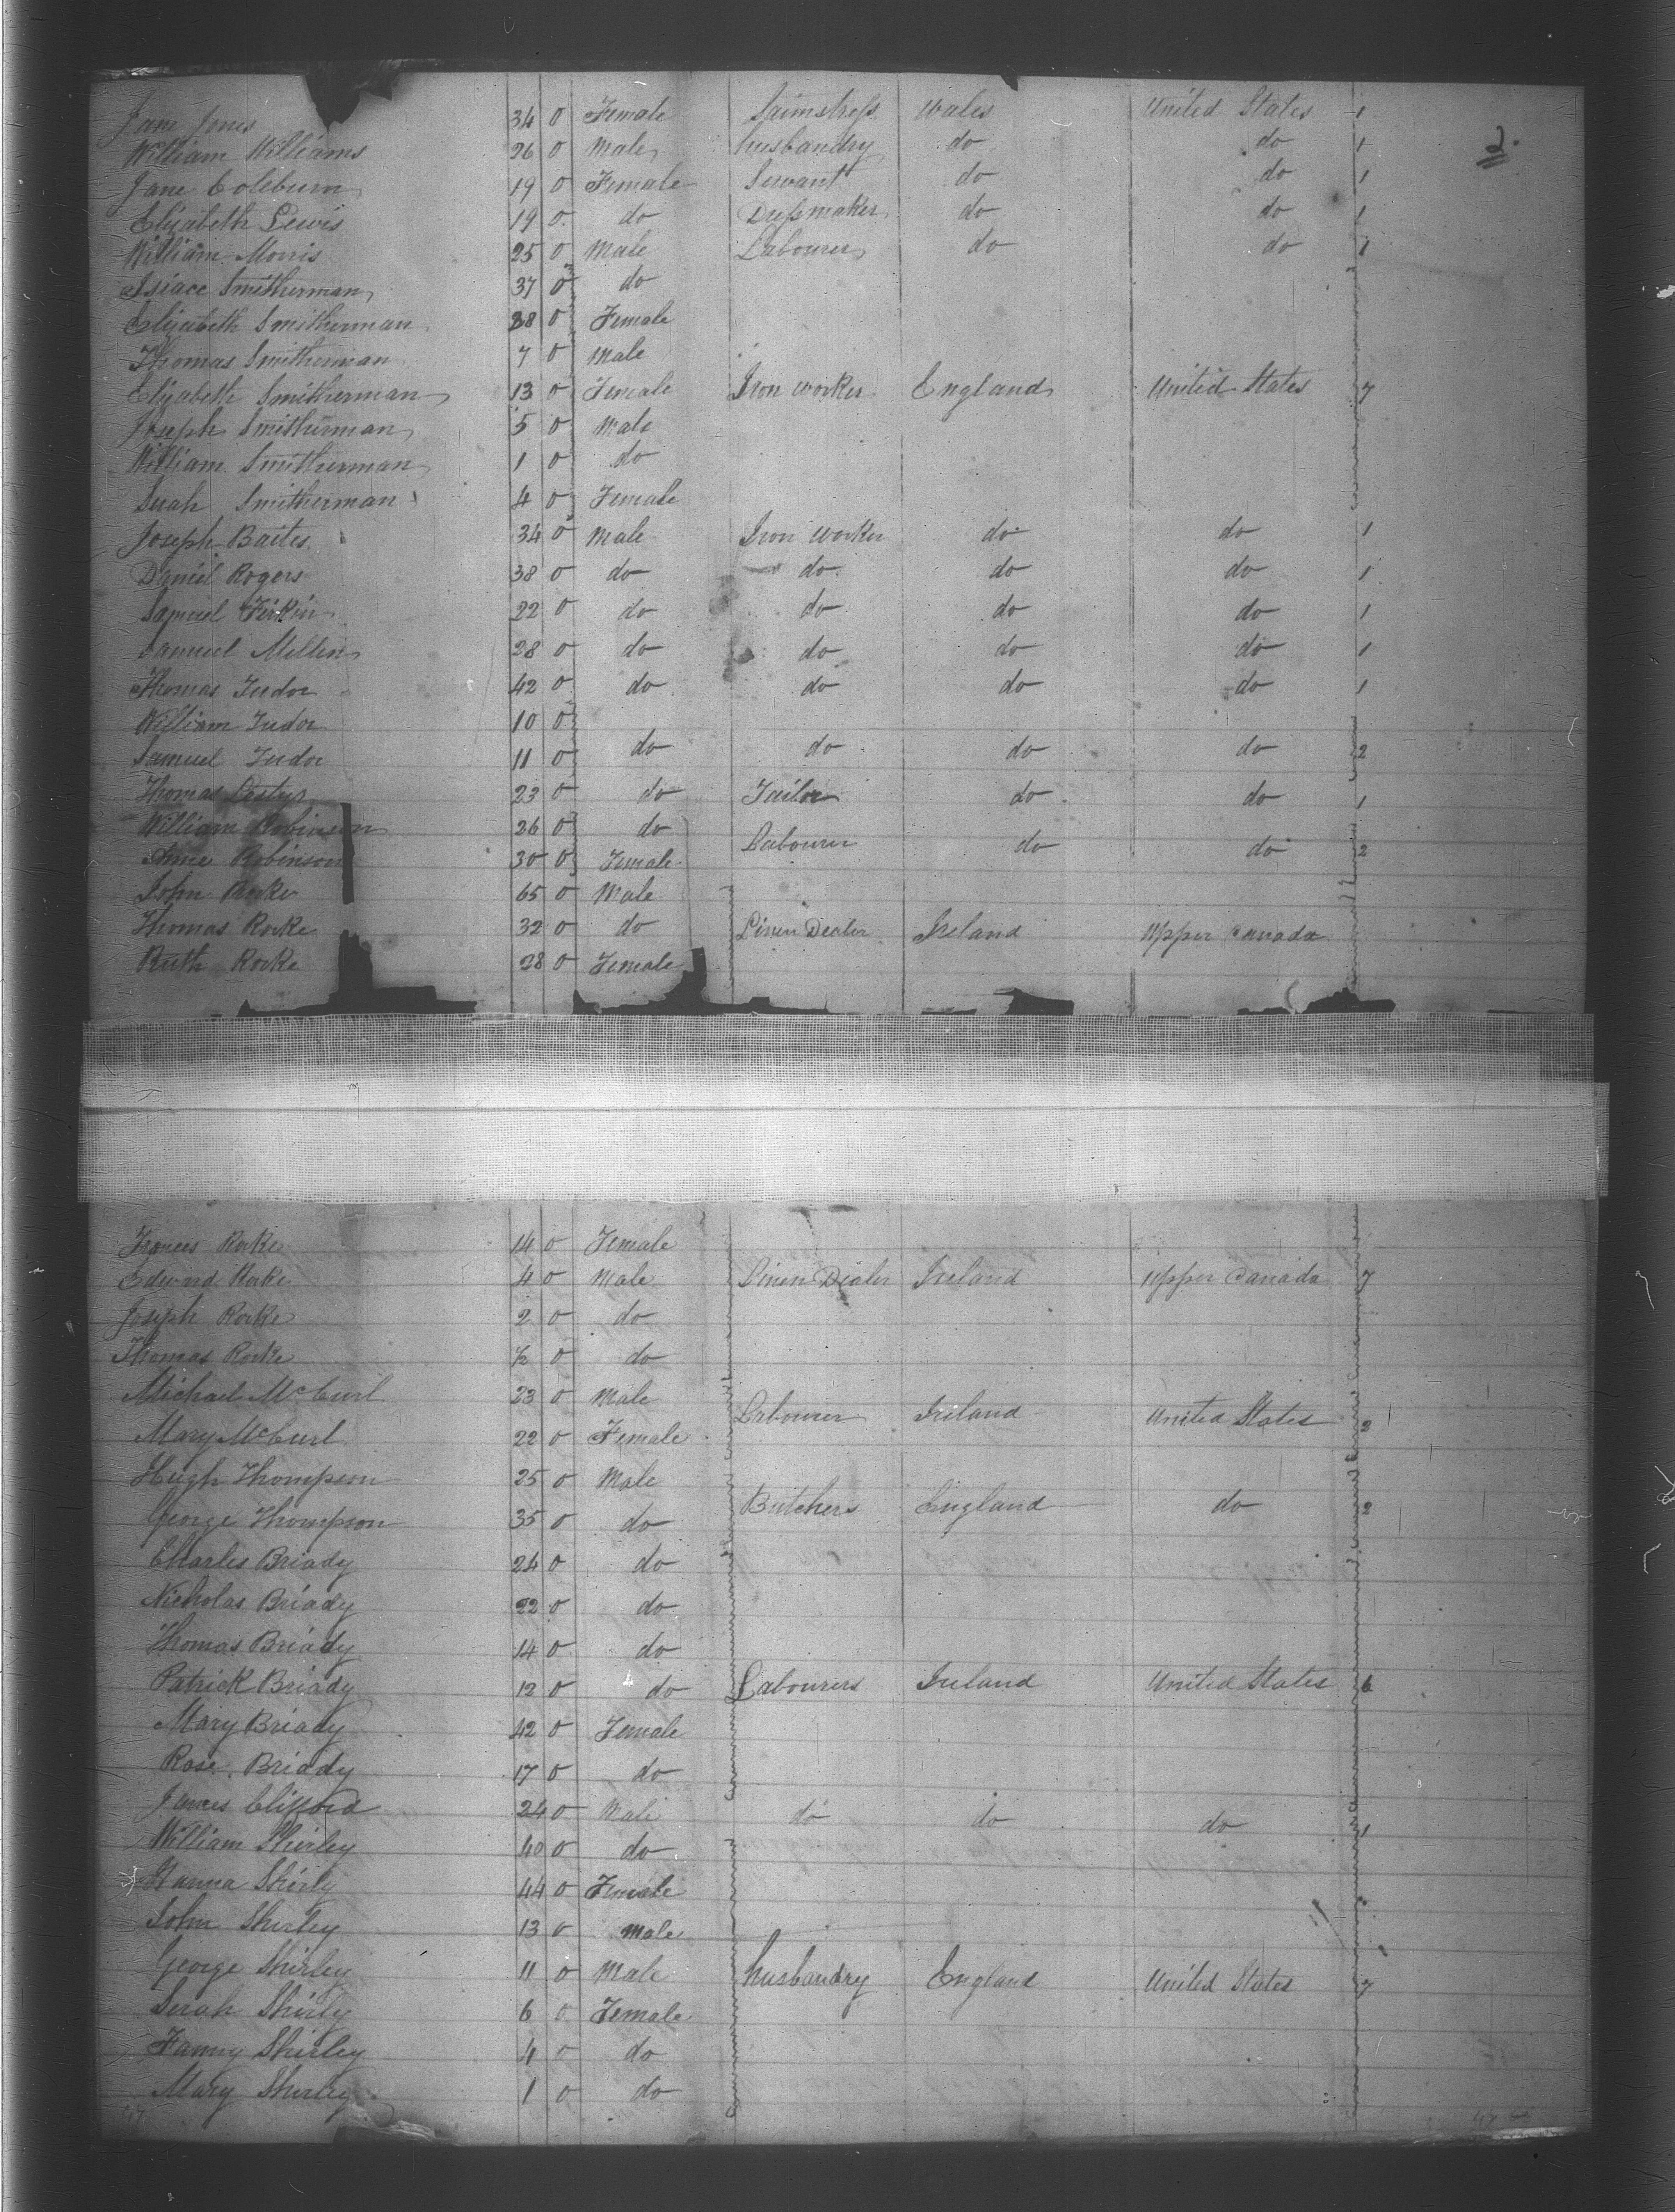 Jane Jones 34 0 Female Saimstress Wales United States 1
2.
William Williams 26 0 Male husbandry do do 1
Jane Coleburn 19 0 Female Servant do do 1
Elizabeth Lewis 19 0 do Dressmaker do do 1
William Morris 25 0 Male Labourer do do 1
Isiace Smitherman 37 0 do
Elizabeth Smitherman 38 0 Female
Thomas Smitherman 7 0 Male
Elizabeth Smitherman 13 0 Female Iron worker England United States 7
Joseph Smitherman 5 0 Male
William Smitherman 1 0 do
Smitherman 4 0 Female
Joseph Baites 34 0 Male Iron worker do do 1
Daniel Rogers 38 0 do do do do 1
Samuel Firkin 22 0 do do do do 1
Samuel Mellin 28 0 do do do do 1
Thomas Tudor 42 0 do do do do 1
William Tudor 10 0
Samuel Tudor 11 0 do do do do 2
Thomas 23 0 do Tailor do do 1
William Robinson 26 0 do
Labourer do do 2
Anne Robinson 30 0 Female
John Rorke 65 0 Male
Thomas Rorke 32 0 do Linen Dealer Ireland Upper Canada
Ruth Rorke 28 0 Female
Frances Rorke 14 0 Female
Edward Rorke 4 0 Male Linen Dealer Ireland Upper Canada 7
Joseph Rorke 2 0 do
Thomas Rorke ½ 0 do
Michael McCurl 23 0 Male
Labourer Ireland United States 2
Mary McCurl 22 0 Female
Hugh Thompson 25 0 Male
Butchers England do 2
George Thompson 35 0 do
Charles Briady 24 0 do
Nicholas Briady 22 0 do
Thomas Briady 14 0 do
Patrick Briady 12 0 do Labourers Ireland United States 6
Mary Briady 42 0 Female
Rose Briady 17 0 do
James Clifford 24 0 Male do do do 1
William Shirley 40 0 do
Hanna Shirly 44 0 Female
John Shirley 13 0 Male
George Shirley 11 0 Male husbandry England United States 7
Serah Shirly 6 0 Female
Fanny Shirley 4 0 do
Mary Shirley 1 0 do